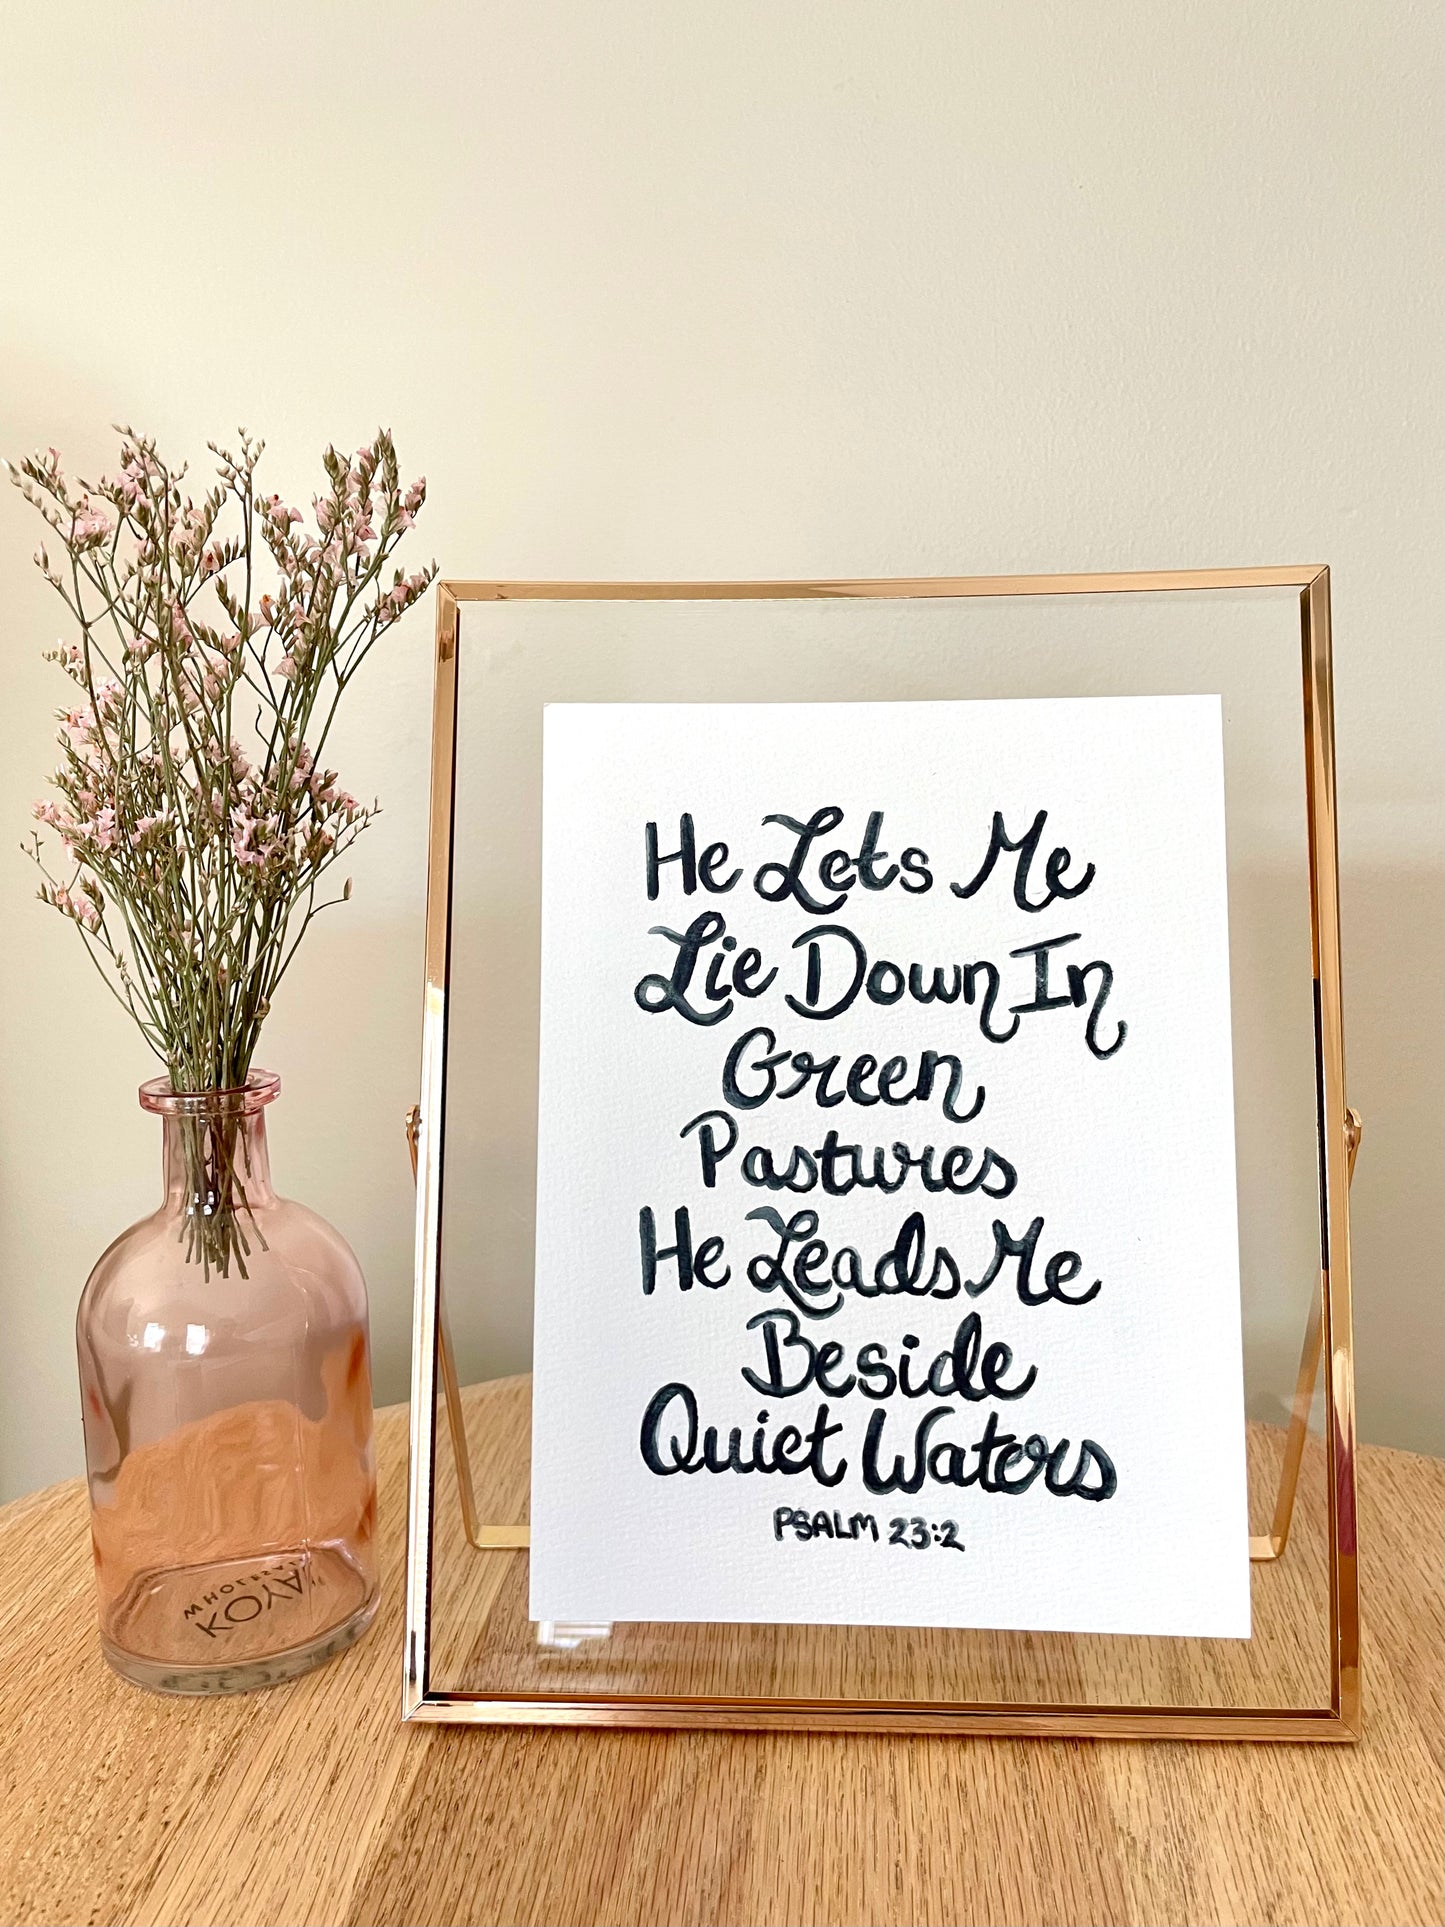 He Lets Me
Lie Down In
Green
Pastures
He Leads Me
Beside
Quiet Waters
PSALM 23:2
KOYA